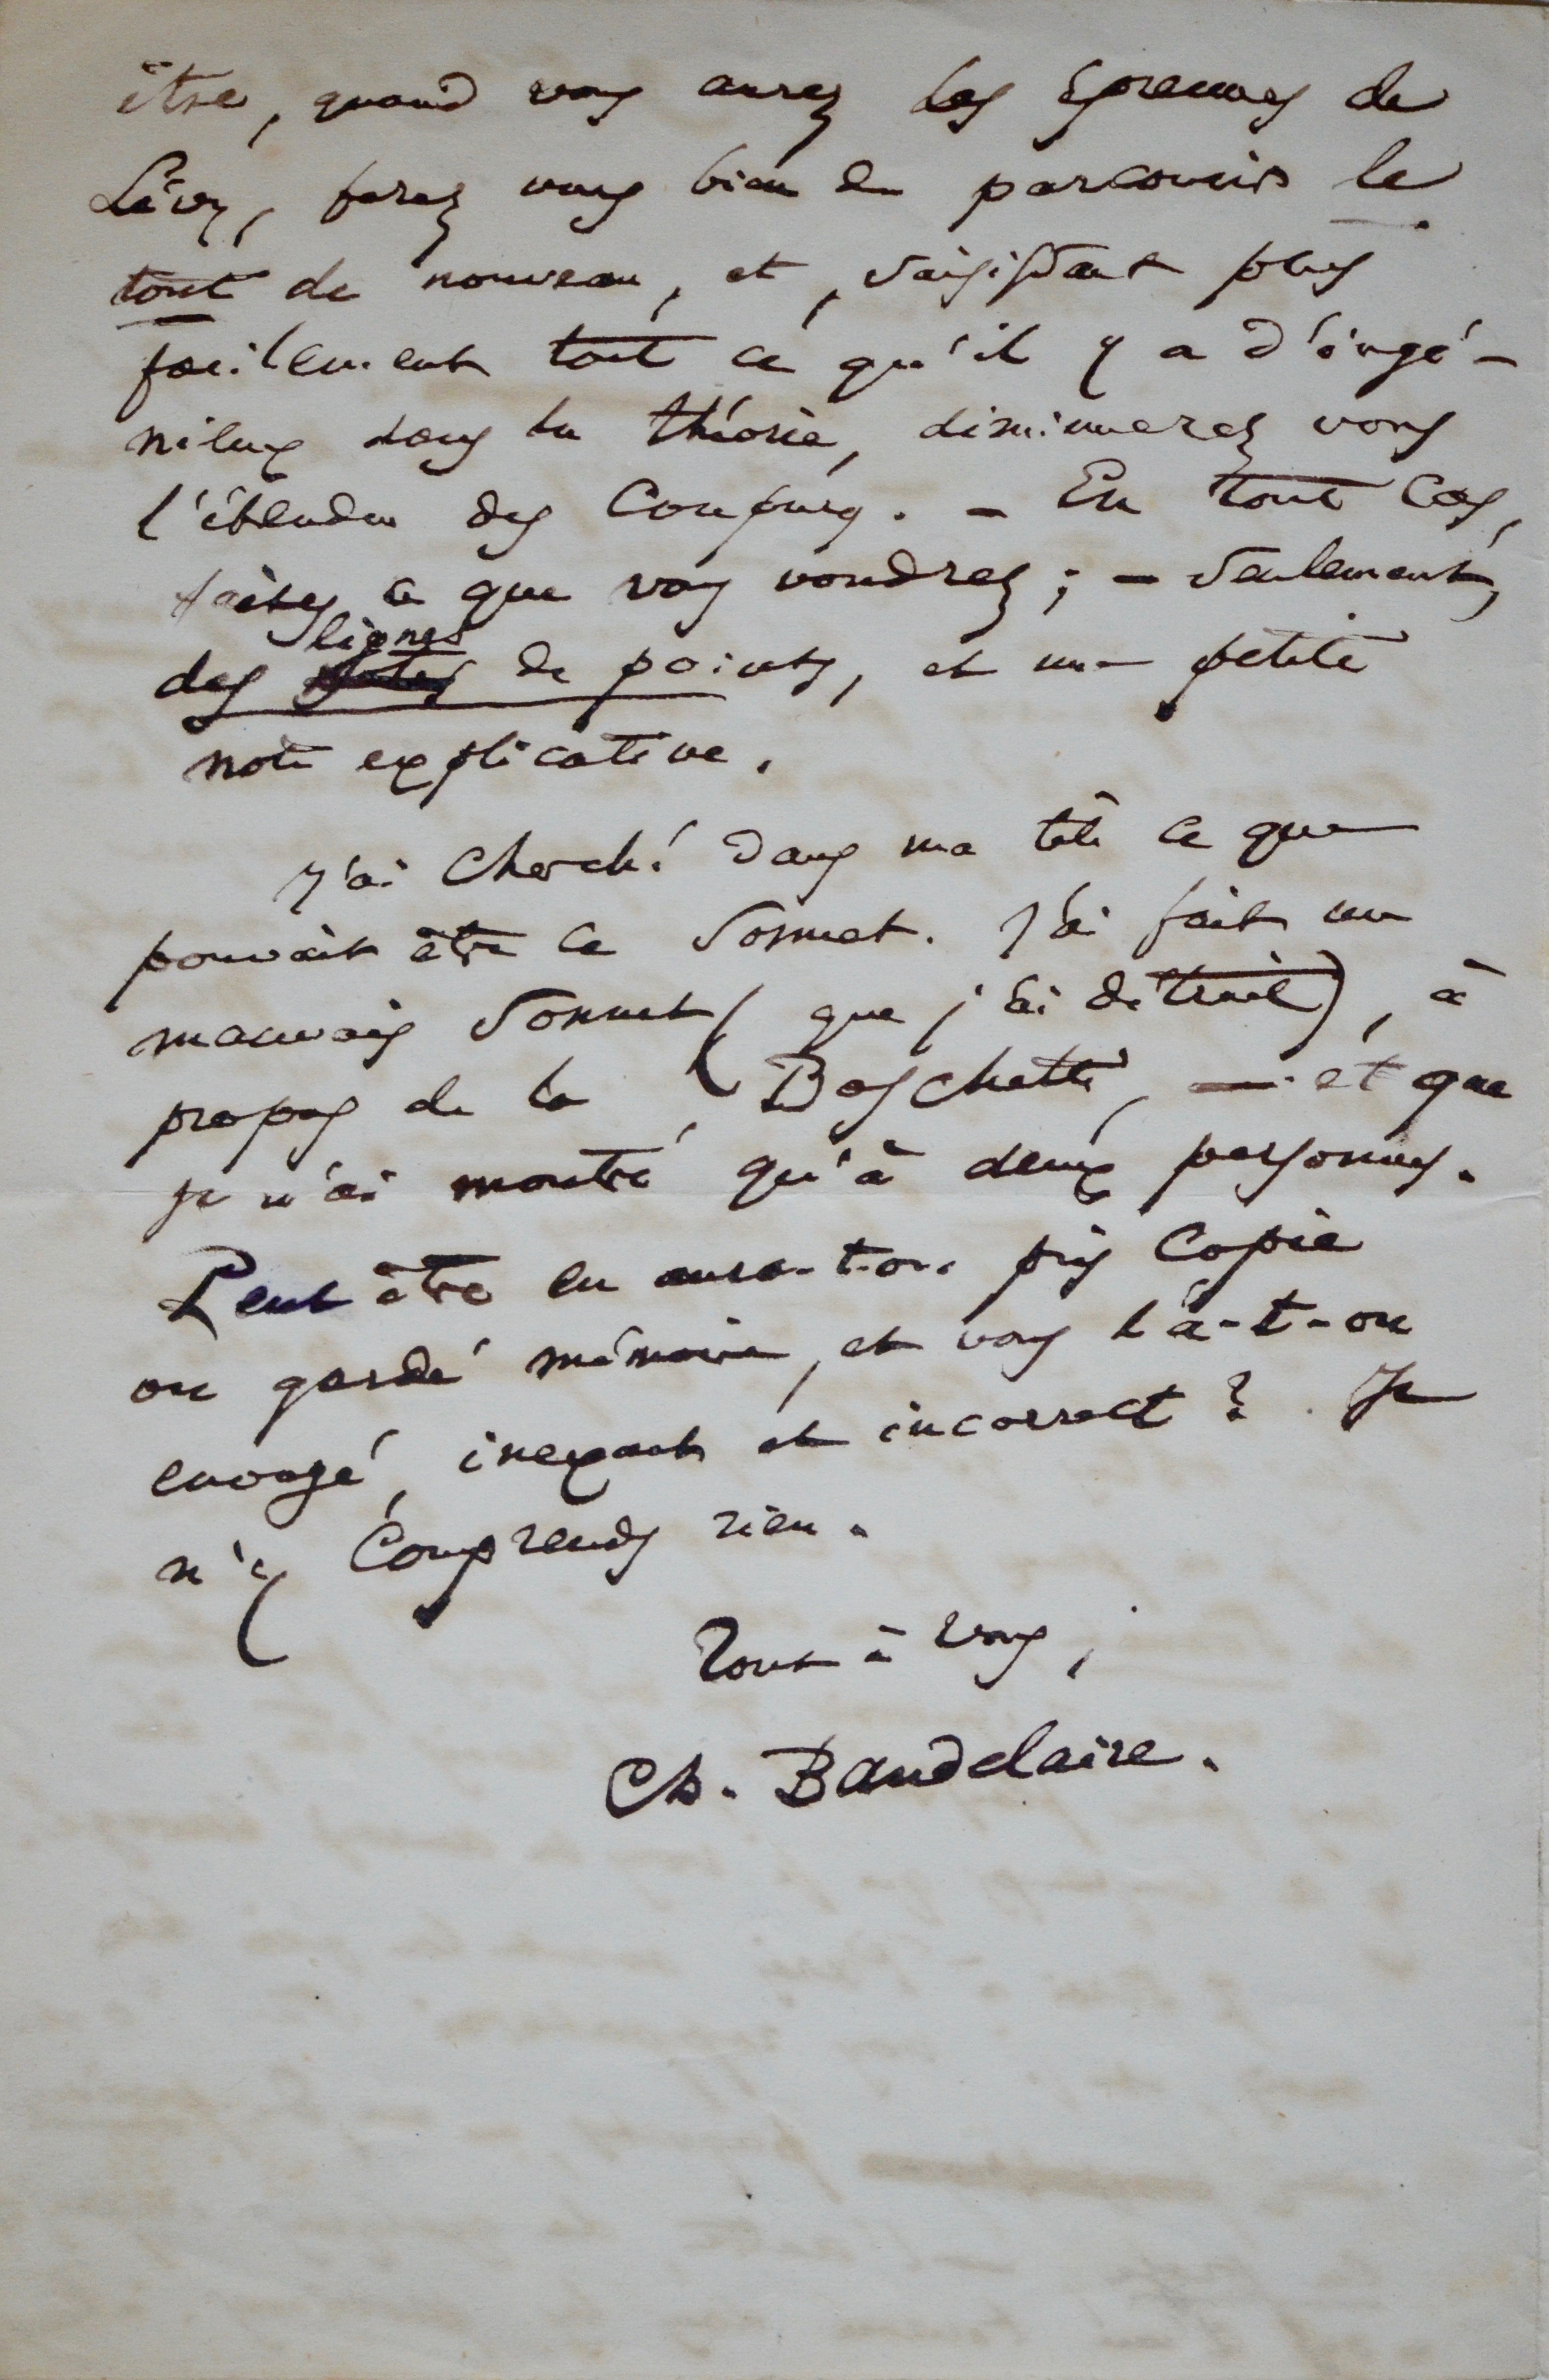 être, quand vous aurez les épreuves de
Lévy, ferez vous bien de parcourir le
tout de nouveau, et, saisissant plus
facilement tout ce qu'il y a d'ingé-
nieux dans la théorie, diminuerez vous
l'étendue des coupures. – En tout cas,
faites ce que vous voudrez ; – seulement,
lignes
des de points, et une petite
note explicative.
J'ai cherché dans ma tête ce que
pouvait être ce sonnet. J'ai fait un
mauvais sonnet (que j'ai détruit), à
propos de la Boschetti, – et que
je n'ai montré qu'à deux personnes.
Peut être en aura-t-on pris copie
ou gardé mémoire, et vous l'a-t-on
envoyé, inexact et incorrect ? Je
n'y comprends rien.
Tout à vous,
Ch. Baudelaire.